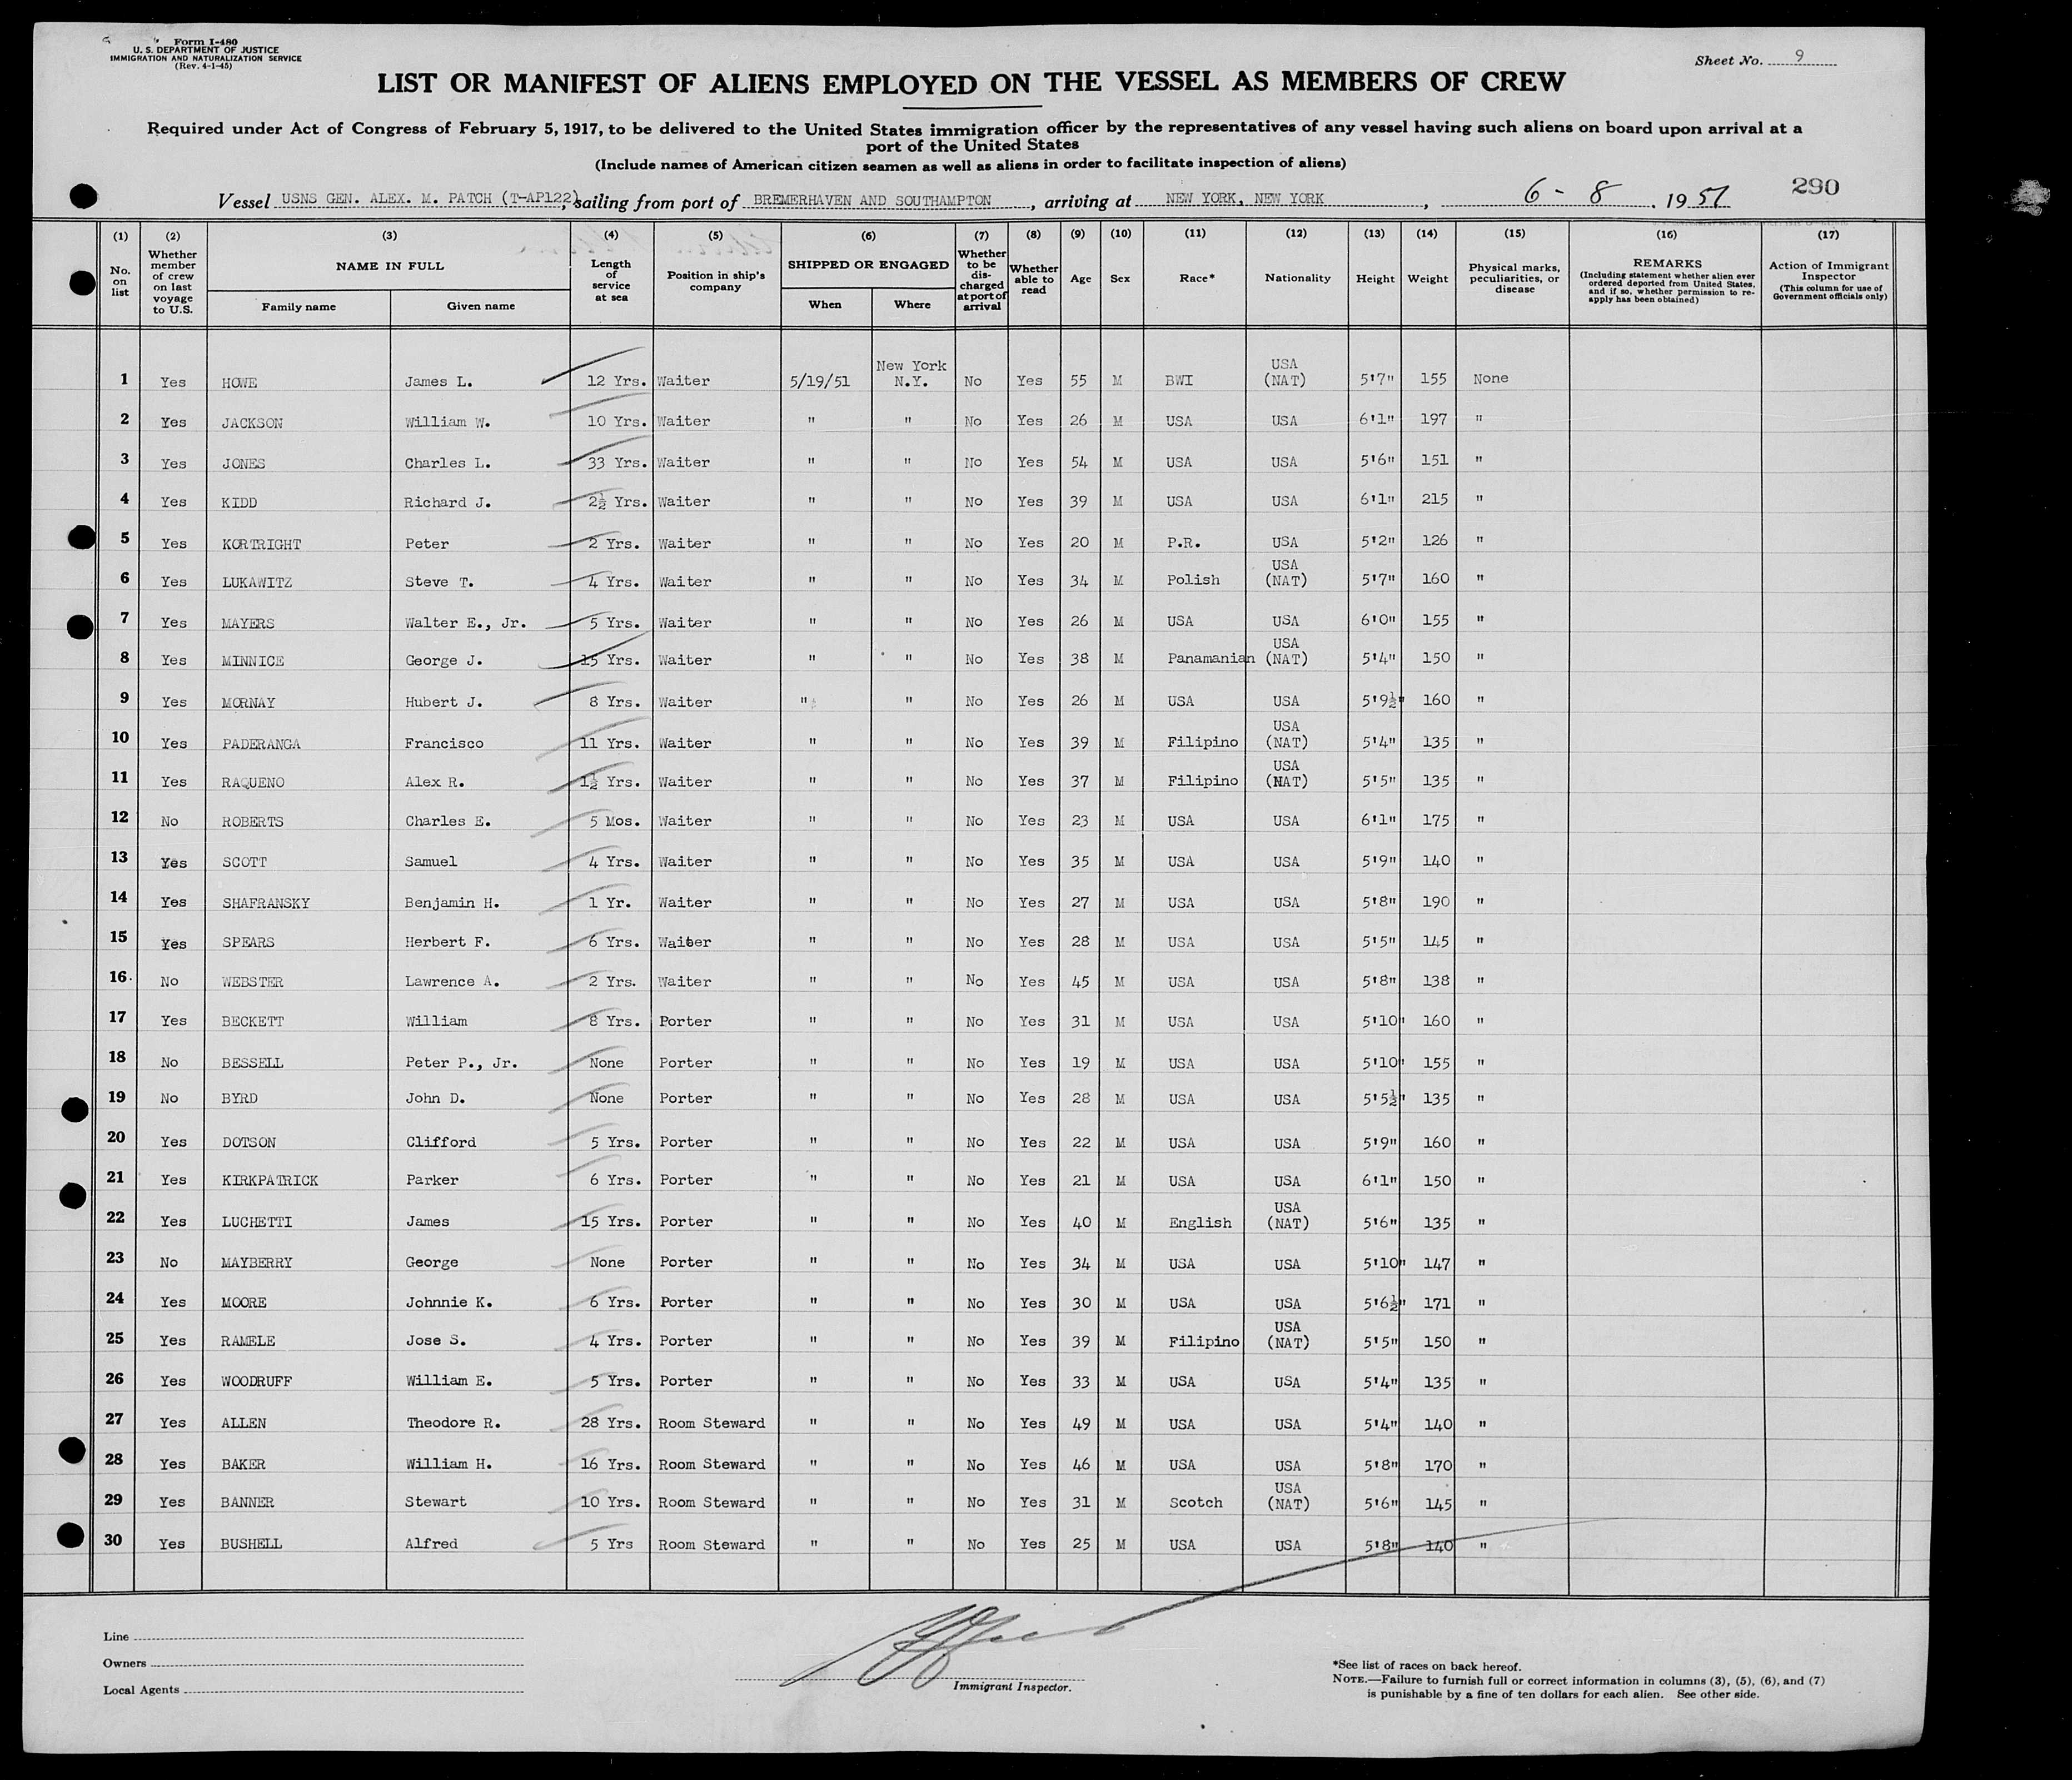 Form I-480
U. S. DEPARTMENT OF JUSTICE
IMMIGRATION AND NATURALIZATION SERVICE
(Rev. 4-1-45)
Sheet No. 9
LIST OR MANIFEST OF ALIENS EMPLOYED ON THE VESSEL AS MEMBERS OF CREW
Required under Act of Congress of February 5, 1917, to be delivered to the United States immigration officer by the representatives of any vessel having such aliens on board upon arrival at a
port of the United States
(Include names of American citizen seamen as well as aliens in order to facilitate inspection of aliens)
290
Vessel USNS GEN. ALEX. M. PATCH (T-AP122), sailing from port of BREMERHAVEN AND SOUTHAMPTON, arriving at NEW YORK, NEW YORK, 6 - 8, 1951
(1) No. on list (2) Whether member of crew on last voyage to U.S. (3) NAME IN FULL Family name Given name (4) Length of service at sea (5) Position in ship's company (6) SHIPPED OR ENGAGED When Where (7) Whether to be discharged at port of arrival (8) Whether able to read (9) Age (10) Sex (11) Race* (12) Nationality (13) Height (14) Weight (15) Physical marks, peculiarities, or disease (16) REMARKS (Including statement whether alien ever ordered deported from United States, and if so, whether permission to re-apply has been obtained) (17) Action of Immigrant Inspector (This column for use of Government officials only)
1 Yes HOWE James L. 12 Yrs. Waiter 5/19/51 New York N.Y. No Yes 55 M BWI USA (NAT) 5'7" 155 None
2 Yes JACKSON William W. 10 Yrs. Waiter " " No Yes 26 M USA USA 6'1" 197 "
3 Yes JONES Charles L. 33 Yrs. Waiter " " No Yes 54 M USA USA 5'6" 151 "
4 Yes KIDD Richard J. 2½ Yrs. Waiter " " No Yes 39 M USA USA 6'1" 215 "
5 Yes KORTRIGHT Peter 2 Yrs. Waiter " " No Yes 20 M P.R. USA 5'2" 126 "
6 Yes LUKAWITZ Steve T. 4 Yrs. Waiter " " No Yes 34 M Polish USA (NAT) 5'7" 160 "
7 Yes MAYERS Walter E., Jr. 5 Yrs. Waiter " " No Yes 26 M USA USA 6'0" 155 "
8 Yes MINNICE George J. 15 Yrs. Waiter " " No Yes 38 M Panamanian USA (NAT) 5'4" 150 "
9 Yes MORNAY Hubert J. 8 Yrs. Waiter " " No Yes 26 M USA USA 5'9½" 160 "
10 Yes PADERANGA Francisco 11 Yrs. Waiter " " No Yes 39 M Filipino USA (NAT) 5'4" 135 "
11 Yes RAQUENO Alex R. 1½ Yrs. Waiter " " No Yes 37 M Filipino USA (NAT) 5'5" 135 "
12 No ROBERTS Charles E. 5 Mos. Waiter " " No Yes 23 M USA USA 6'1" 175 "
13 Yes SCOTT Samuel 4 Yrs. Waiter " " No Yes 35 M USA USA 5'9" 140 "
14 Yes SHAFRANSKY Benjamin H. 1 Yr. Waiter " " No Yes 27 M USA USA 5'8" 190 "
15 Yes SPEARS Herbert F. 6 Yrs. Waiter " " No Yes 28 M USA USA 5'5" 145 "
16 No WEBSTER Lawrence A. 2 Yrs. Waiter " " No Yes 45 M USA USA 5'8" 138 "
17 Yes BECKETT William 8 Yrs. Porter " " No Yes 31 M USA USA 5'10" 160 "
18 No BESSELL Peter P., Jr. None Porter " " No Yes 19 M USA USA 5'10" 155 "
19 No BYRD John D. None Porter " " No Yes 28 M USA USA 5'5½" 135 "
20 Yes DOTSON Clifford 5 Yrs. Porter " " No Yes 22 M USA USA 5'9" 160 "
21 Yes KIRKPATRICK Parker 6 Yrs. Porter " " No Yes 21 M USA USA 6'1" 150 "
22 Yes LUCHETTI James 15 Yrs. Porter " " No Yes 40 M English USA (NAT) 5'6" 135 "
23 No MAYBERRY George None Porter " " No Yes 34 M USA USA 5'10" 147 "
24 Yes MOORE Johnnie K. 6 Yrs. Porter " " No Yes 30 M USA USA 5'6½" 171 "
25 Yes RAMELE Jose S. 4 Yrs. Porter " " No Yes 39 M Filipino USA (NAT) 5'5" 150 "
26 Yes WOODRUFF William E. 5 Yrs. Porter " " No Yes 33 M USA USA 5'4" 135 "
27 Yes ALLEN Theodore R. 28 Yrs. Room Steward " " No Yes 49 M USA USA 5'4" 140 "
28 Yes BAKER William H. 16 Yrs. Room Steward " " No Yes 46 M USA USA 5'8" 170 "
29 Yes BANNER Stewart 10 Yrs. Room Steward " " No Yes 31 M Scotch USA (NAT) 5'6" 145 "
30 Yes BUSHELL Alfred 5 Yrs Room Steward " " No Yes 25 M USA USA 5'8" 140 "
Line
Owners
Local Agents
Immigrant Inspector.
*See list of races on back hereof.
NOTE.—Failure to furnish full or correct information in columns (3), (5), (6), and (7)
is punishable by a fine of ten dollars for each alien. See other side.